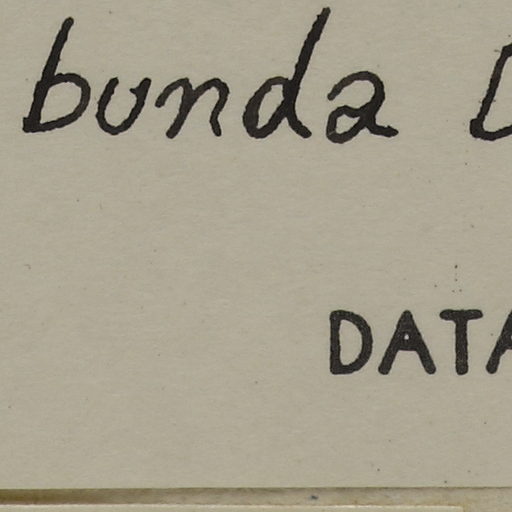 bunda D
DATA